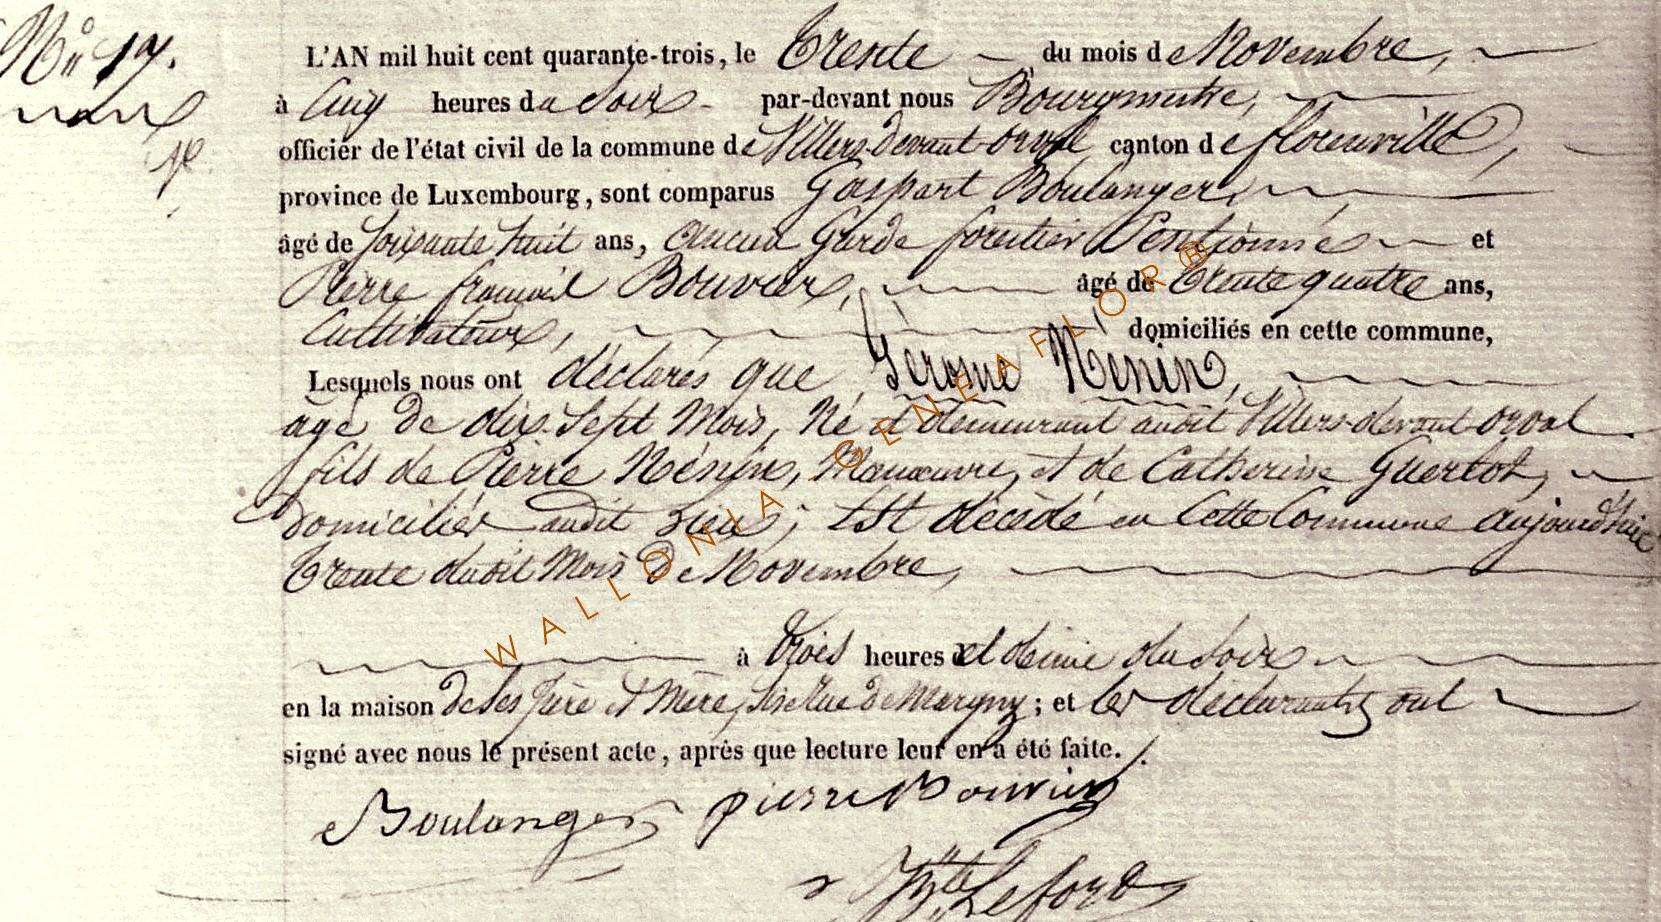 N° 17.
L'AN mil huit cent quarante-trois, le Trente du mois de Novembre,
à Cinq heures du Soir par-devant nous Bourgmestre,
officier de l'état civil de la commune de Villers-devant-orval canton de florenville,
province de Luxembourg, sont comparus Gaspart Boulanger,
âgé de soixante huit ans, ancien Garde forestier Pentionné et
Pierre françois Bouvier, âgé de trente quatre ans,
Cultivateur, domiciliés en cette commune,
Lesquels nous ont déclarés que Jérome Nénin,
agé de dix Sept Mois, Né et demeurant audit Villers-devant-orval
fils de Pierre Nénin, Manœuvre, et de Catherine Guerlot,
Domiciliés audit Lieu; Est décédé en Cette Commune aujourd'huit
Trente dudit Mois De Novembre,
à trois heures et demie du Soir
en la maison de ses Père et Mère, Sise Rue de Margny; et les déclarants ont
signé avec nous le présent acte, après que lecture leur en a été faite.
Boulanger pierre Bouvier
Leford
WALLONIA GENEAFLOR®